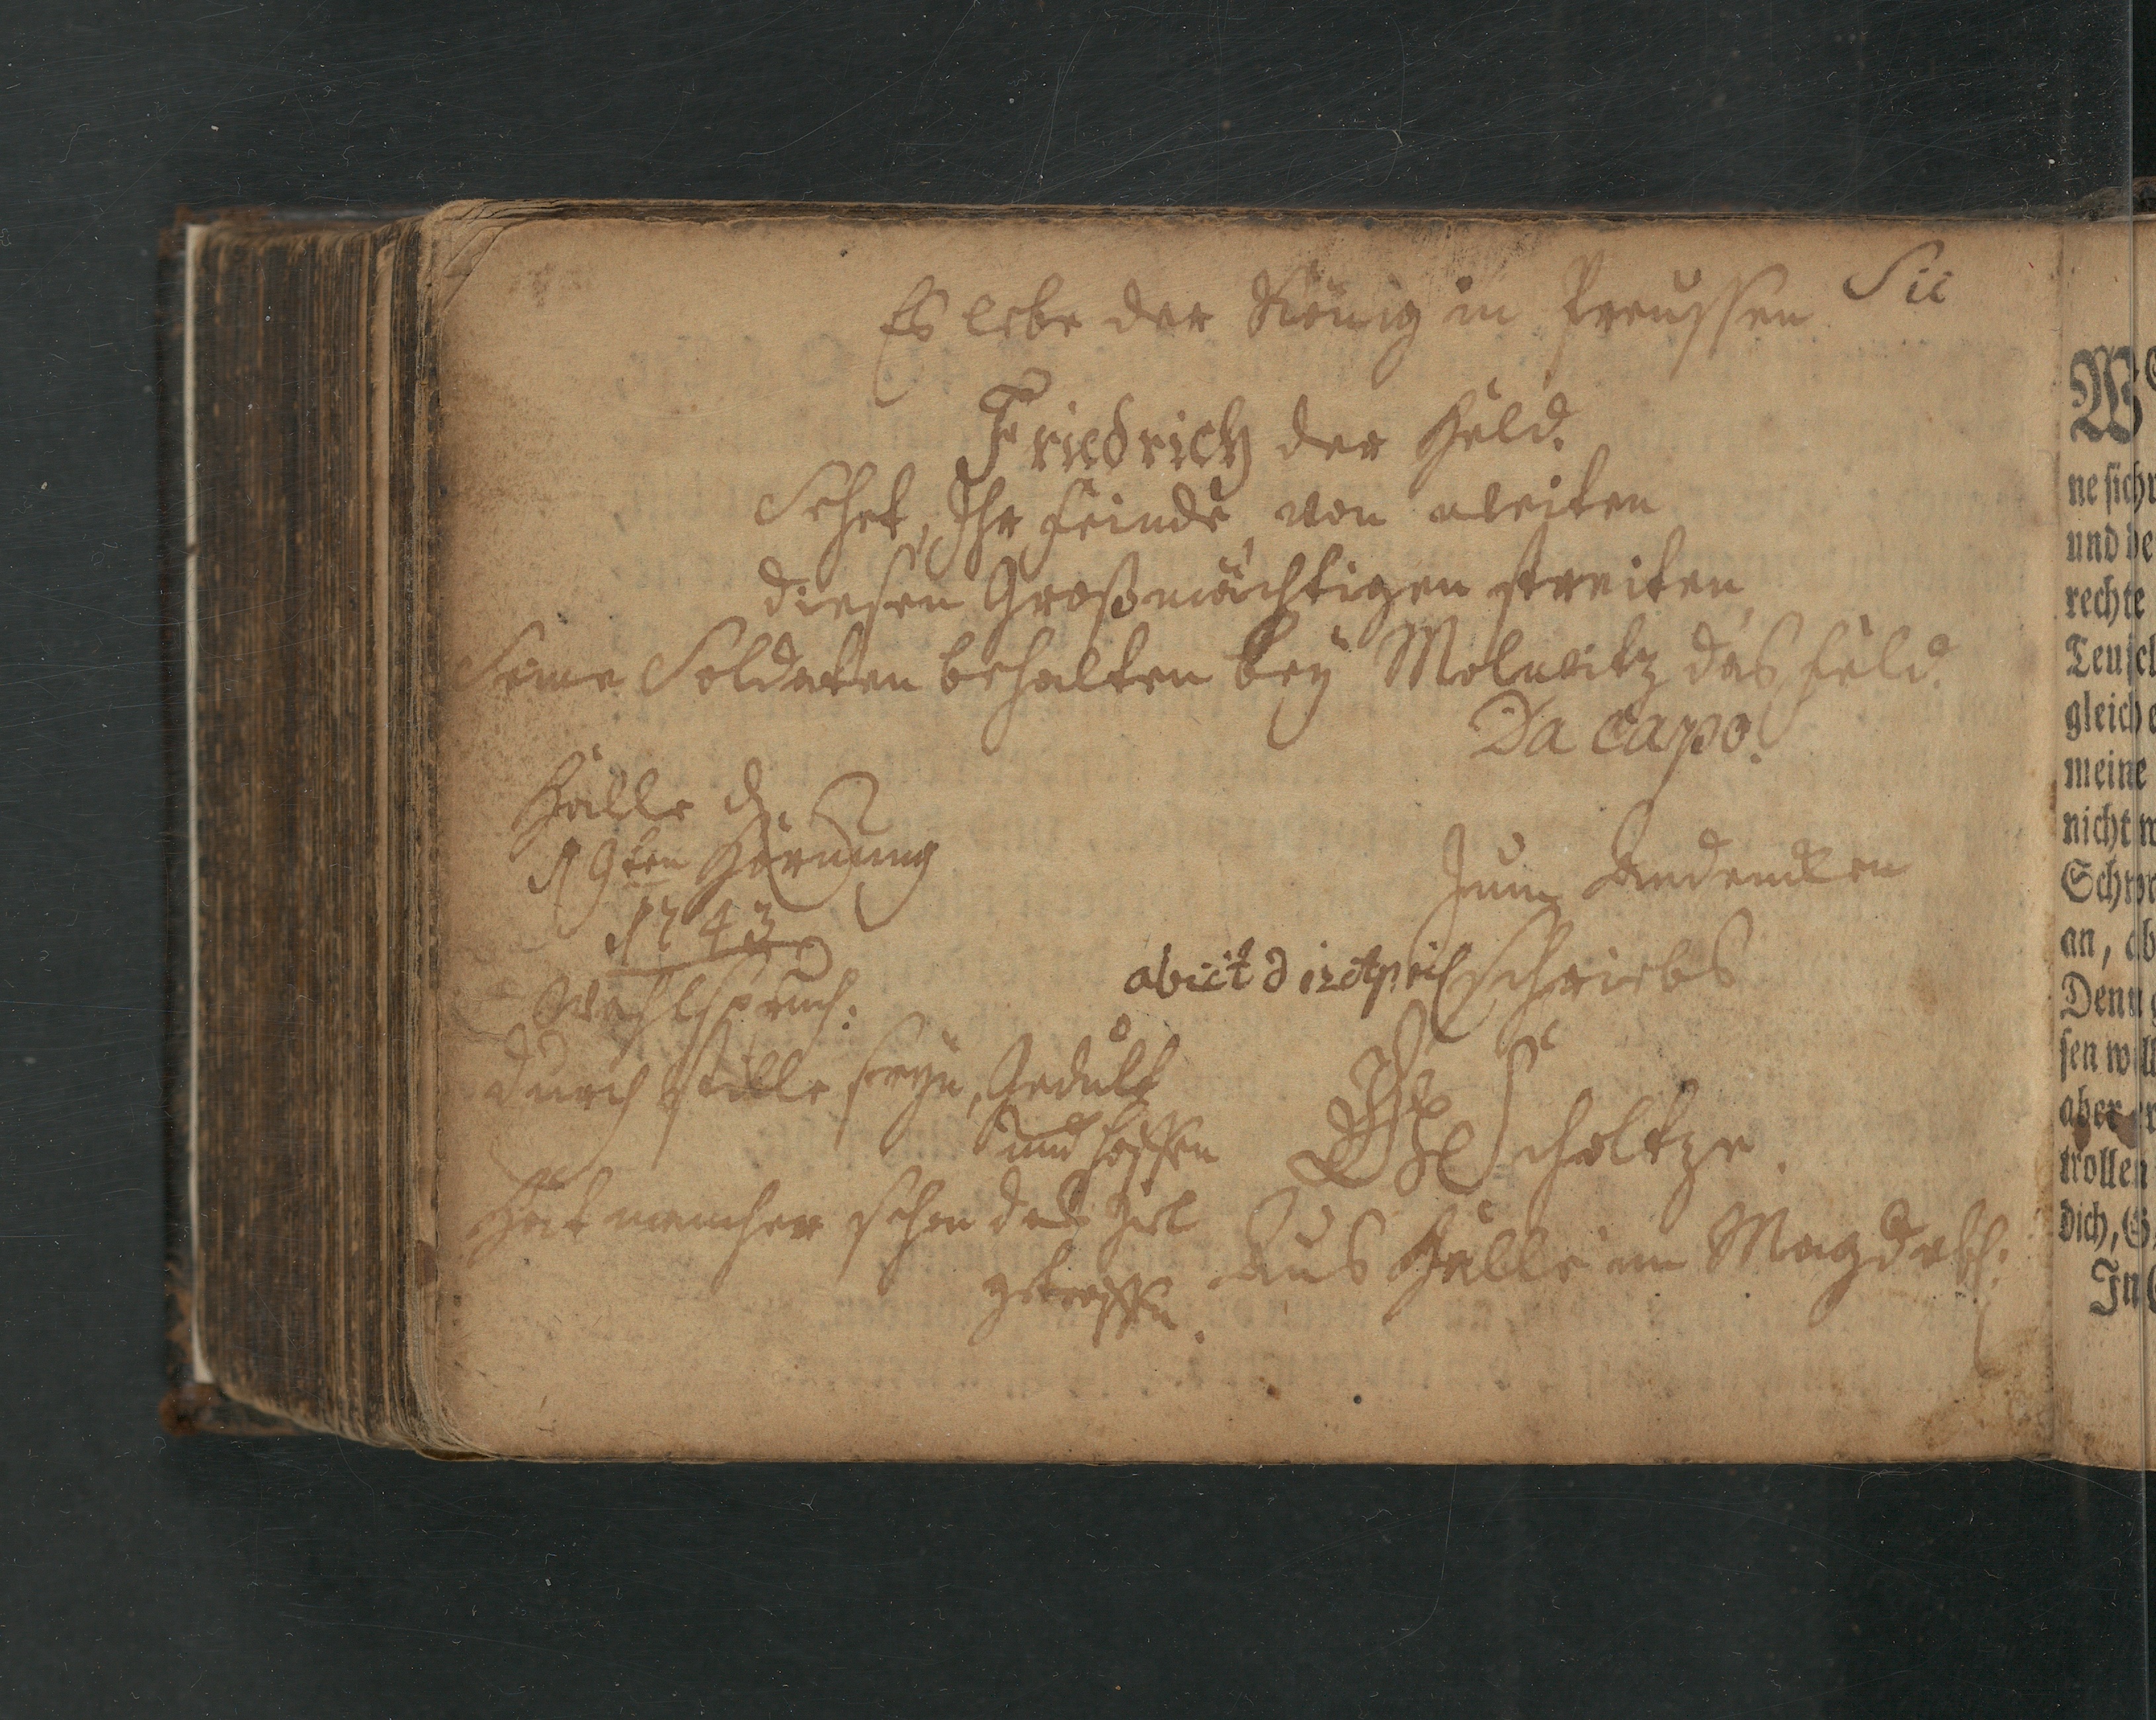 Es lebe der König in Preussen Sic
Friedrich der Held.
Sehet, Ihr Feinde, von weiten
diesen Großmächtigen streiten,
Seine Soldaten behalten bey Molwitz das Feld.
Da capo.
Halle d.
19ten Hornung
1743
Wahlspruch:
durch stille seyn, Gedult
und hoffen
Hat mancher schon das Ziel
getroffen.
Zum Andencken
schriebs
Scholtze.
aus Halle im Magdeb:
W
ne sich
und de
rechte
Teufel
gleich
meine
nicht
an, ob
Denn
sen
aber
trollen
dich,
In